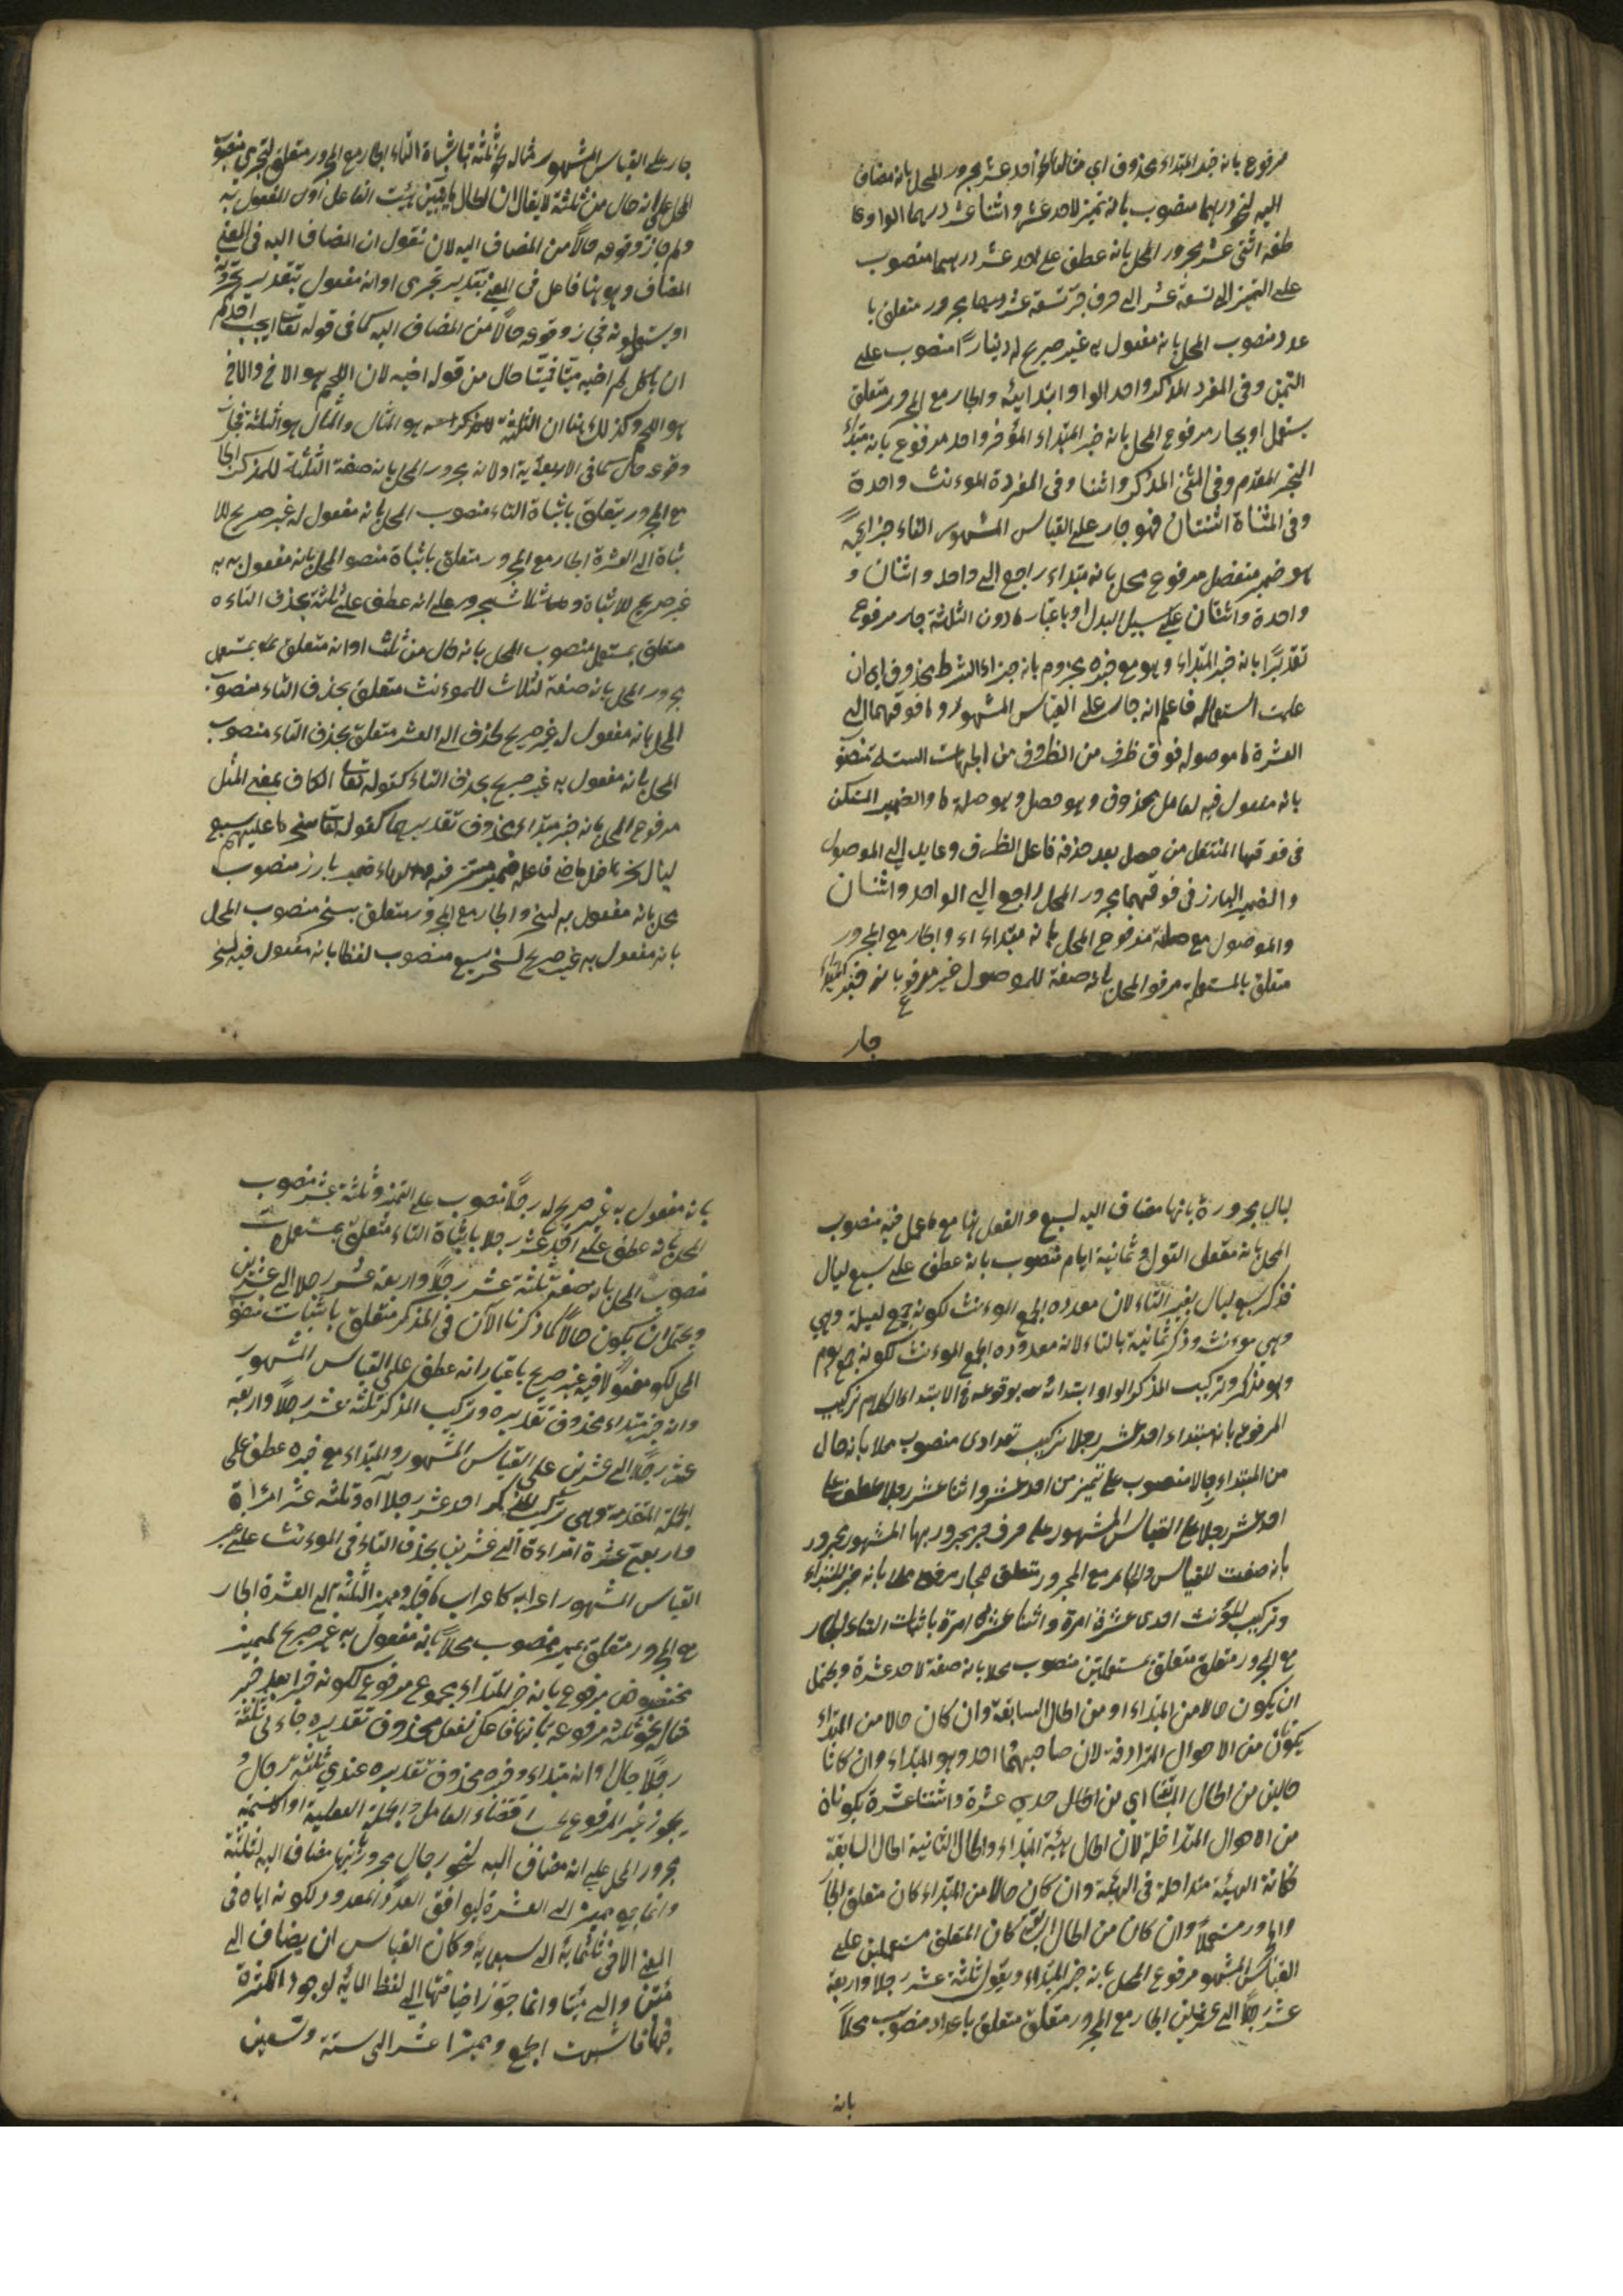 مرفوع بانه خبر المبتداء محذوف اي مثالها نحو احد عشر مجرور المحل بانه مضاف
اليه لنحو درهما منصوب بانه تميز لاحد عشر واثنا عشر درهما الواو عا
طفه اثنى عشر مجرور المحل بانه عطف على احد عشر درهما منصوب
على التميز الى تسعة عشر الى حرف جر تسعة عشر مجرور متعلق با
عدد منصوب المحل بانه مفعول به غير صريح له دينارًا منصوب على
التميز وفى المفرد المذكر واحد الواو ابتدائيه والجار مع المجرور متعلق
يستعمل او بجار مرفوع المحل بانه خبر المبتداء المؤخر واحد مرفوع بانه مبتداء
الخبر المقدم وفى المثنى المذكر واثنا وفى المفردة الموءنث واحدة
وفى المثناة اثنتان فهو جار على القياس المشهور الفاء جزايةً
هو ضمير منفصل مرفوع محل بانه مبتداء راجع الى واحد واثنان و
واحدة واثنتان على سبيل البدل او باعتبار ما دون الثلثة جار مرفوع
تقديرًا بانه خبر المبتداء وهو مع خبره مجزوم بانه جزاء الشرط محذوف اى ان
علمت استعماله فاعلم انه جار على القياس المشهور وما فوقهما الى
العشرة ما موصوله فوق ظرف من الظروف من الجهات الستة منصو
بانه مفعول فيه لعامل محذوف وهو حصل وهو صلة ما والضمير المستكن
فى فوقهما المنتقل من حصل بعد حذفه فاعل الظرف وعايد الى الموصول
والضمير البارز فى فوقهما مجرور المحل راجع الى الواحد واثنان
والموصول مع صلة مرفوع المحل بانه مبتداء اء والجار مع المجرور
متعلق بالمستعملة مرفو المحل بانه صفة للموصول خبر مرفوع بانه خبر المبتداء
جار
جار على القياس المشهور مثاله نحو ثلثة باثباة التاء الجار مع المجرور متعلق لتجرى منصوب
المحل على انه حال من ثلثة لا يقال ان الحال ما يبين هيئت الفاعل او المفعول به
ولم جاز وقوعه حالاً من المضاف اليه لان نقول ان المضاف اليه فى المعنى
المضاف وهو هنا فاعل فى المعنى بتقدير تجرى او انه مفعول بتقدير تجرونه
او يستعملونه فجاز وقوعه حالاً من المضاف اليه كما فى قوله تعا ايحب احدكم
ان ياكل لحم اخيه ميتا فميتا حال من قوله اخيه لان اللحم هو الاخ والاخ
هو اللحم وكذلك هنا ان الثلثة للمذكر هو المثال والمثال هو الثلثة فجاز
وقوعه حال كما فى الاربعة او لانه مجرور المحل بانه صفة الثلثة للمذكر الجا
مع المجرور يتعلق باثباة التاء منصوب المحل بانه مفعول له غير صريح للا
ثباة الى العشرة الجار مع المجرور متعلق باثباة منصو المحل بانه مفعول به
غير صريح للاثباة وثلاث مجرور على انه عطف على ثلثة بحذف التاء
متعلق يستعمل منصوب المحل بانه حال من ثلث او انه متعلق يستعمل
مجرور المحل بانه صفة لثلاث للموءنث متعلق بحذف التاء منصوب
المحل بانه مفعول له غير صريح لحذف الى العشر متعلق بحذف التاء منصوب
المحل بانه مفعول به غير صريح بحذف التاء كقوله تعا الكاف بمعنى المثل
مرفوع المحل بانه خبر مبتداء محذوف تقديره كقوله تعا سخرها عليهم سبع
ليال سخر فاعل ماضى فاعله ضمير مستتر فيه والهاء ضمير بارز منصوب
محل بانه مفعول به لسخر والجار مع المجرور متعلق بسخر منصوب المحل
بانه مفعول به غير صريح لسخر سبع منصوب لفظا بانه مفعول فيه لسخر
ليال مجرورة بانها مضاف اليه لسبع والفعل هنا مع ما عمل فيه منصوب
المحل بانه مفعلى القول وثمانية ايام منصوب بانه عطف على سبع ليال
فذكر سبع ليال بغير التاء لان معدوده الجمع الموءنث لكونه جمع ليلة وهي
وهي موءنث وذكر ثمانية بالتاء لانه معدوده الجمع الموءنث لكونه جمع يوم
وهو مذكر وتركيب المذكر الواو ابتدائه بوقوعه فى الابتداء الكلام تركيب
المرفوع بانه مبتداء احد عشر رجلا تركيب تعدادى منصوب محلا بانه حال
من المبتداء رجلا منصوب على تميز من احد عشر واثنا عشر رجلا عطف على
احد عشر رجلا على القياس المشهور على حرف جر مجرور بها المشهور مجرور
بانه صفت للقياس والجار مع المجرور متعلق بجار مرفوع محلا بانه خبر للمبتداء
وتركيب للمؤنث احدى عشرة امرة واثنتا عشرة امرة باثبات التاء الجار
مع المجرور متعلق متعلق بمستعملتين منصوب محلا بانه صفة لاحد عشرة ويحتمل
ان يكون حالا من المبتداء او من الحال السابقة وان كان حالا من المبتداء
يكون من الاحوال المترادفة لان صاحبهما احد وهو المبتداء وان كانا
حالين من الحال السابقة اي من الحال احدي عشرة واثنتا عشرة يكونان
من الاحوال المتداخلة لان الحال هيئة المبتداء والحال الثانية الحال السابقة
فكانة الهيئة متداخلة فى الهيئة وان كان حالا من المبتداء كان متعلق الجا
والمجرور مستعملاً وان كان من الحال السابقة كان المتعلق مستعملين على
القياس المشهور مرفوع المحل بانه خبر المبتداء ويقول ثلثة عشر رجلا واربعة
عشر رجلاً الى عشرين الجار مع المجرور متعلق متعلق باعداد منصوب محلاً
بانه
بانه مفعول به غير صريح له رجلاً منصوب على التميز وثلثة عشر منصوب
المحل بانه عطف على احد عشر رجلا باثباة التاء متعلق بمستعملة
منصوب المحل بانه صفة ثلثة عشر رجلاً واربعة عشر رجلا الى عشرين
ويحتمل ان يكون حالاً كما ذكرنا الآن فى المذكر متعلق باثبات منصو
المحل لكو مفعولا فيه غير صريح باعتبار انه عطف على القياس المشهور
وانه خبر مبتداء محذوف تقديره وتركيب المذكر ثلثة عشر رجلاً واربعة
عشر رجلاً الى عشرين على القياس المشهور والمبتداء مع خبره عطف على
الجملة المتقدمة وهى تركيب للمذكر احد عشر رجلا اه وثلثه عشر امرأة
واربعة عشرة امراءة الى عشرين بحذف التاء فى الموءنث على غير
القياس المشهور اعرابه كاعراب ما قبله ومميز الثلثة الى العشرة الجار
مع المجرور متعلق بمميز منصوب محلاً بانه مفعول به غير صريح لمميز
مخفوض مرفوع بانه خبر المبتداء مجموع مرفوع لكونه خبرا بعد خبر
مثال نحو ثلثة مرفوعه بانها فاعل لفعل محذوف تقديره جاءنى ثلثة
رجال او انه مبتداء وخبره محذوف تقديره عندي ثلثة رجال و
يجوز غير المرفوع بحسب اقتضاء العامل والجملة الفعلية او الاسمية
مجرور المحل على انه مضاف اليه لنحو رجال مجرور بانها مضاف اليه لثلثة
وانما جمع مميز الى العشرة ليوافق العدد المعدود لكونه اياه فى
المعنى الا فى ثلثمائة الى تسعمائة وكان القياس ان يضاف الى
مئين والى مئات وانما جوز اضافتها الى لفظ المائة لوجود الكثرة
فيها فاشبهت الجمع ومميز احد عشر الى ستة وتسعين